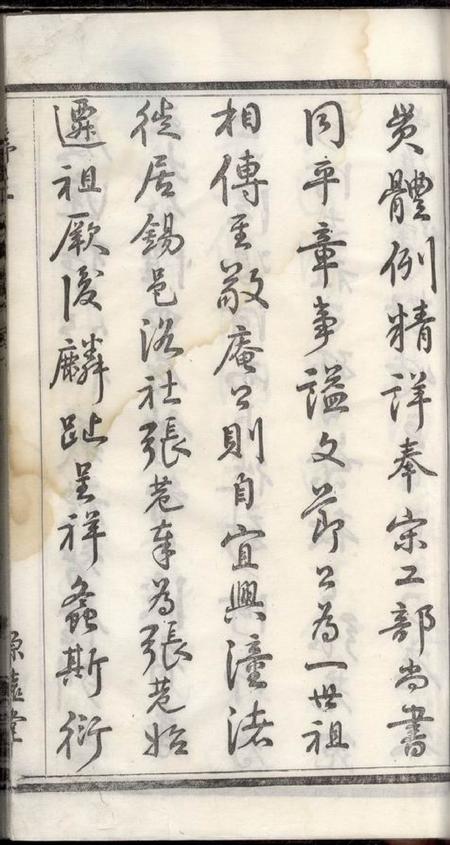 贯體例精詳奉宋工部尚書
同平章事諡文節公為一世祖
相傳至敬庵公則自宜興潼渚
徙居錫邑洛社張巷奉為張巷始
遷祖厥後麟趾呈祥螽斯衍